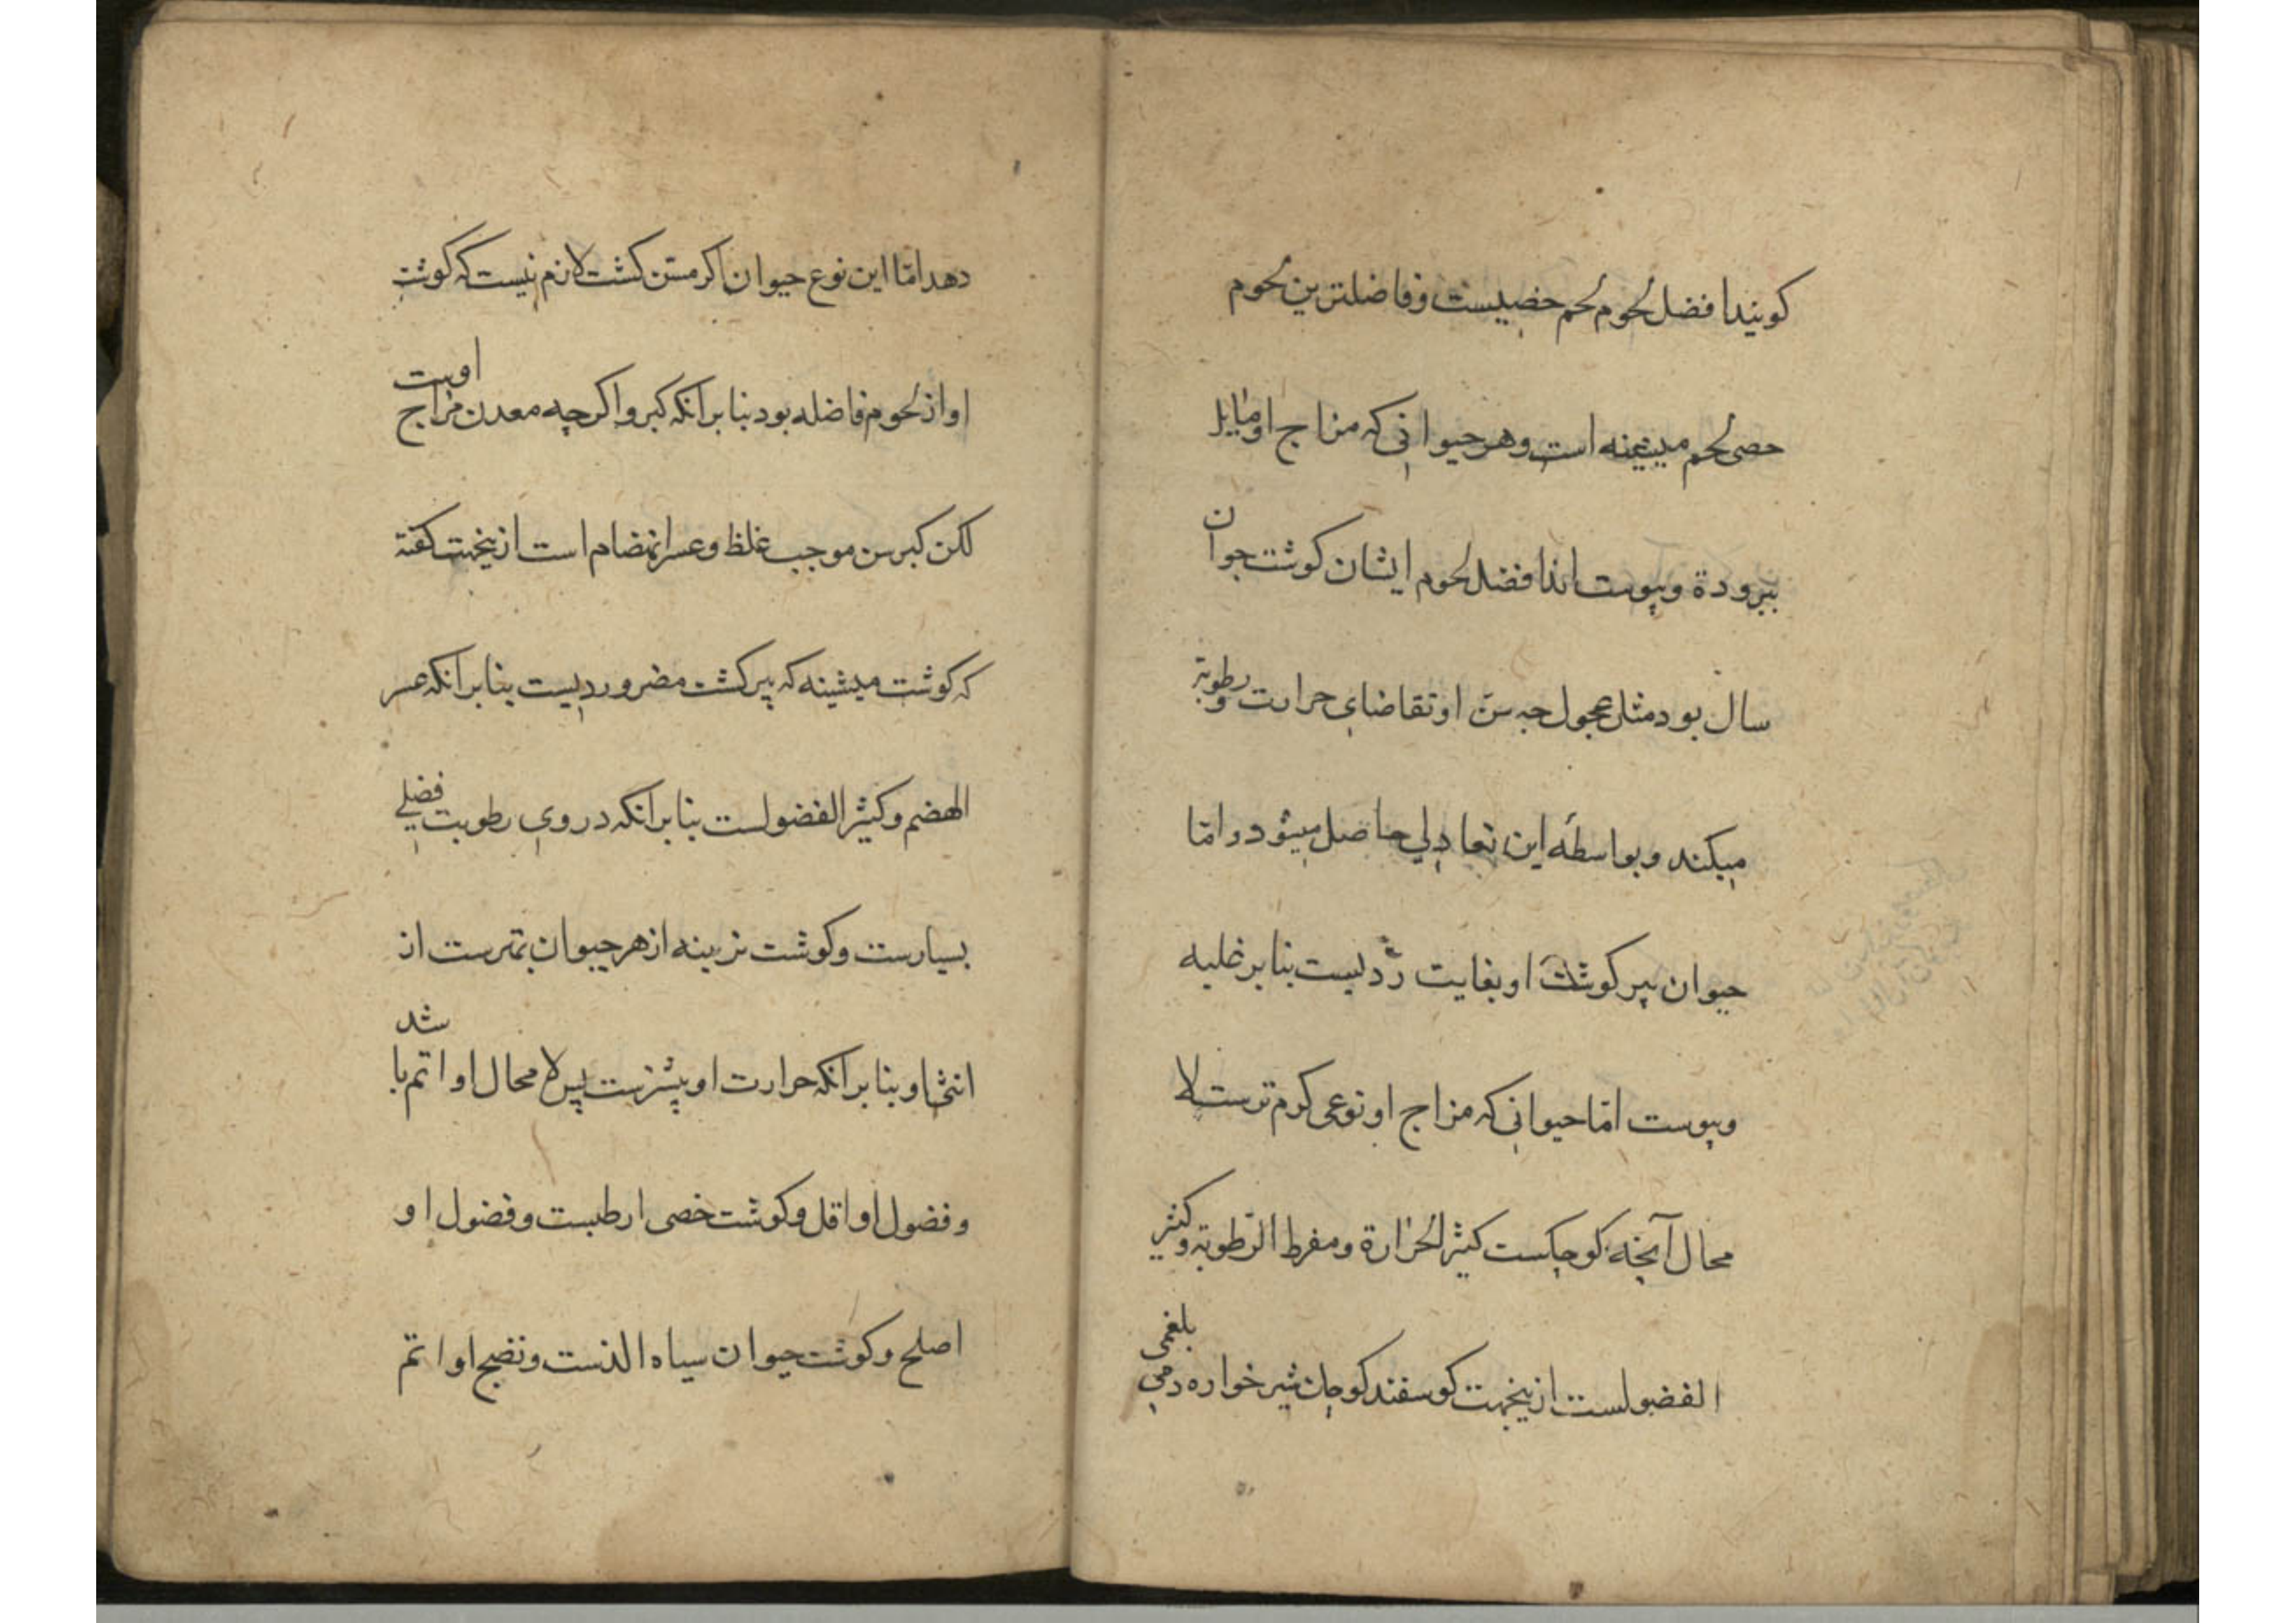 كويندا فضل لحوم لحم خصيست وفاضلترين لحوم
خصى لحم ميشينه است وهر حيوانى كه مزاج او مايل
ببرودة ويبوست اند افضل لحوم ايشان كوشت جوان
سال بود مثل عجول چه سن او تقاضاى حرارت و رطوبة
ميكند وبواسطه اين تعادلى حاصل ميشود و امّا
حيوان پير كوشت او بغايت رديست بنا بر غلبه
ويبوست امّا حيوانى كه مزاج او نوعى كرم ترست لا
محال آنچه كوچكست كثير الحرارة ومفرط الرّطوبة وكثير
الفضولست ازينجهت كوسفند كوچك شير خواره دمى بلغمى
دهد امّا اين نوع حيوان اكر مسن كشت لازم نيست كه كوشت
او از لحوم فاضله بود بنا بر انكه كبر و اكر چه معدن مزاج اوست
لكن كبر سن موجب غلظ وعسر انهضام است ازينجهت كفته
كه كوشت ميشينه كه پير كشت مضر ورديست بنا بر انكه عسر
الهضم وكثير الفضولست بنا بر انكه در وى رطوبت فضلى
بسيارست وكوشت نرينه از هر حيوان بهترست از
انثى او بنا بر انكه حرارت او بيشترست پس لا محال او اتم باشد
وفضول او اقل وكوشت خصى ارطبست وفضول او
اصلح وكوشت حيوان سياه الذست ونضج او اتم